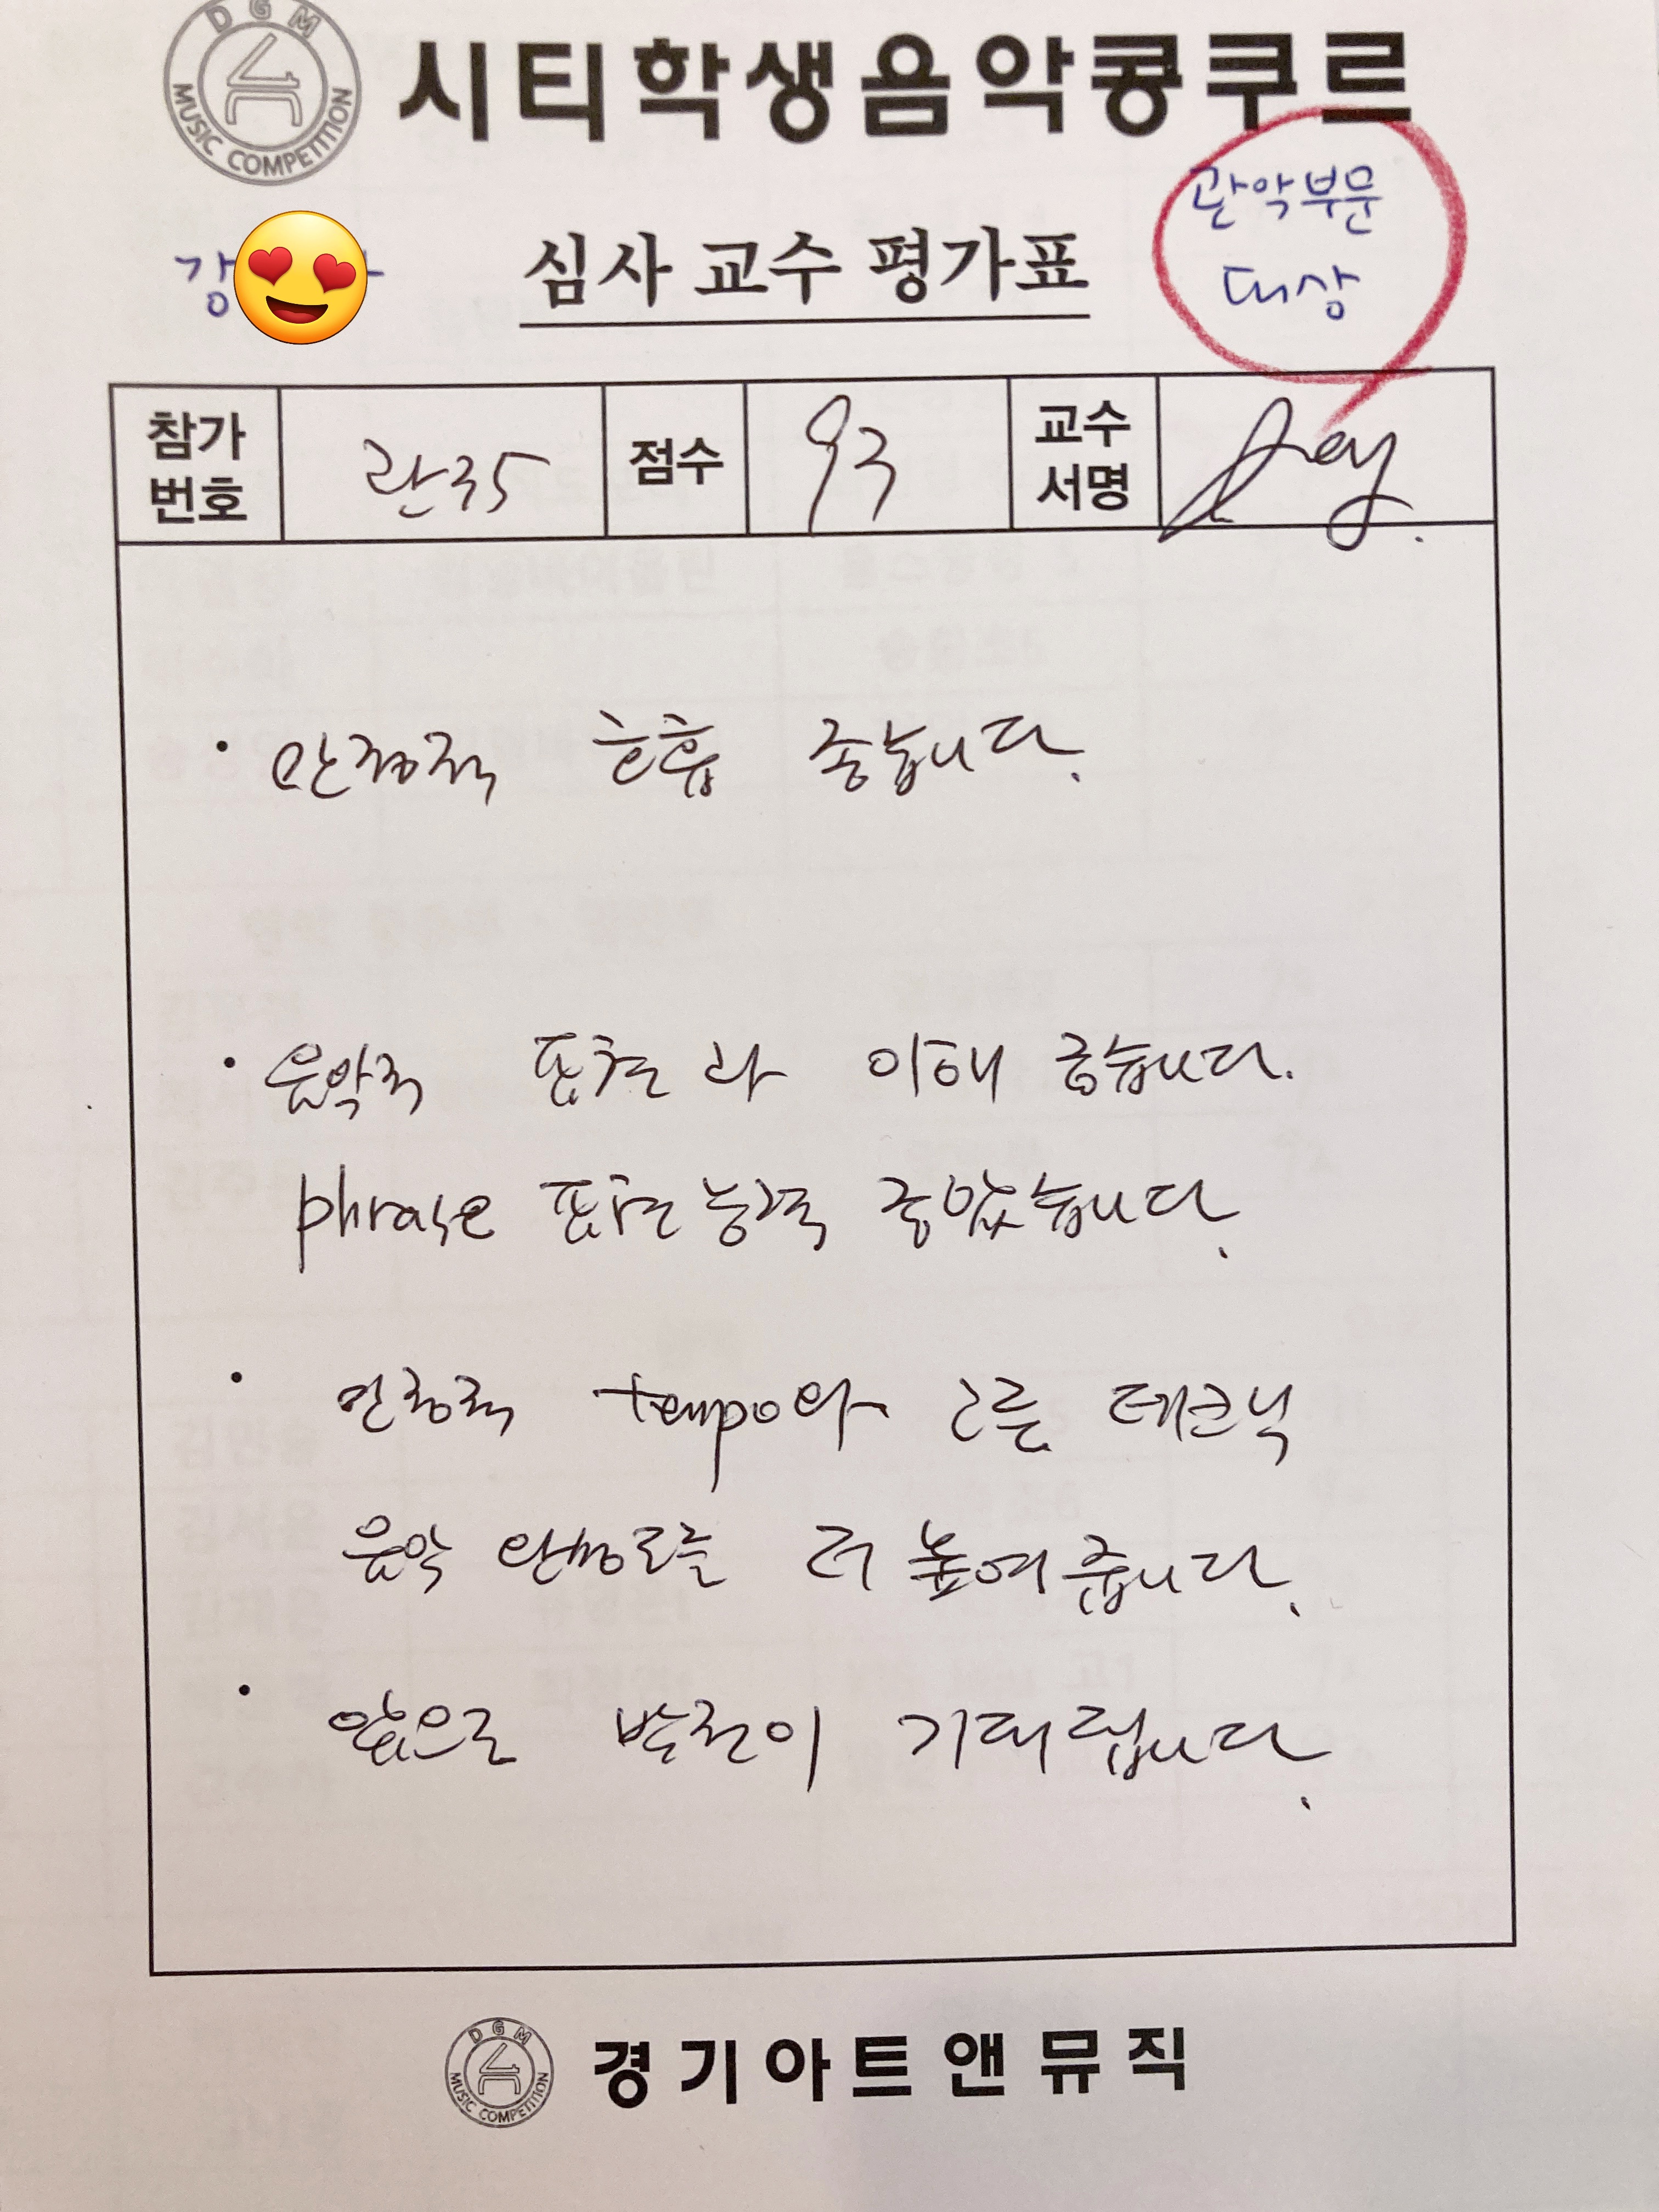 DGM
MUSIC COMPETITION
시티학생음악콩쿠르
관악부문
대상
강
심사 교수 평가표
참가
번호
관35
점수
93
교수
서명
· 안정적 호흡 좋습니다.
· 음악적 표현과 이해 좋습니다.
phrase 표현능력 좋았습니다.
· 안정적 tempo와 고른 테크닉
음악 완성도를 더 높여줍니다.
· 앞으로 발전이 기대됩니다.
DGM
MUSIC COMPETITION
경기아트앤뮤직